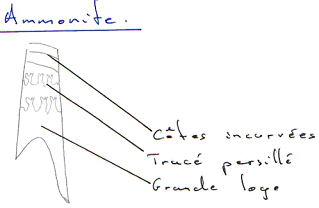 Ammonite.
Côtes incurvées
Tracé persillé
Grande loge